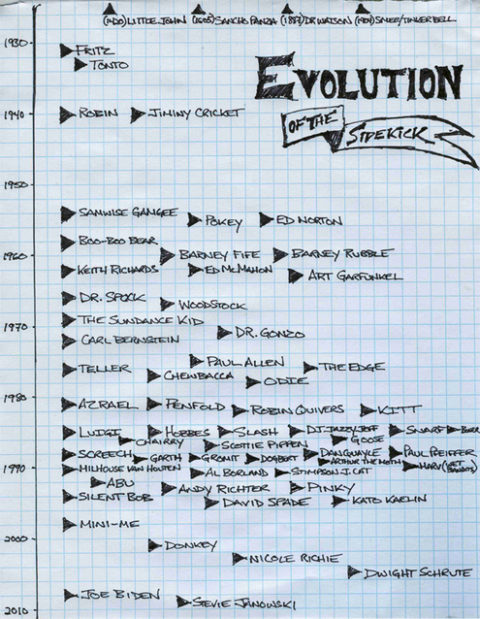 (1400) LITTLE JOHN (1605) SANCHO PANZA (1887) DR WATSON (1904) SMEE/TINKERBELL
EVOLUTION
OF THE
SIDEKICK
1930
FRITZ
TONTO
1940
ROBIN JIMINY CRICKET
1950
SAMWISE GAMGEE POKEY ED NORTON
BOO-BOO BEAR
1960
BARNEY FIFE BARNEY RUBBLE
KEITH RICHARDS ED McMAHON ART GARFUNKEL
DR. SPOCK WOODSTOCK
THE SUNDANCE KID
1970
CARL BERNSTEIN DR. GONZO
TELLER PAUL ALLEN THE EDGE
CHEWBACCA ODIE
1980
AZRAEL PENFOLD ROBIN QUIVERS KITT
LUIGI HOBBES SLASH DJ JAZZY JEFF SNARF
CHAIRRY SCOTTIE PIPPEN GOOSE
SCREECH GARTH GROMIT DOGBERT DAN QUAYLE PAUL PFEIFFER
ARTHUR THE MOTH
1990
MILHOUSE VAN HOUTEN AL BORLAND STIMPSON J. CAT MARV (WET BANDITS)
ABU ANDY RICHTER PINKY
SILENT BOB DAVID SPADE KATO KAELIN
MINI-ME
2000
DONKEY
NICOLE RICHIE
DWIGHT SCHRUTE
JOE BIDEN STEVIE JANOWSKI
2010